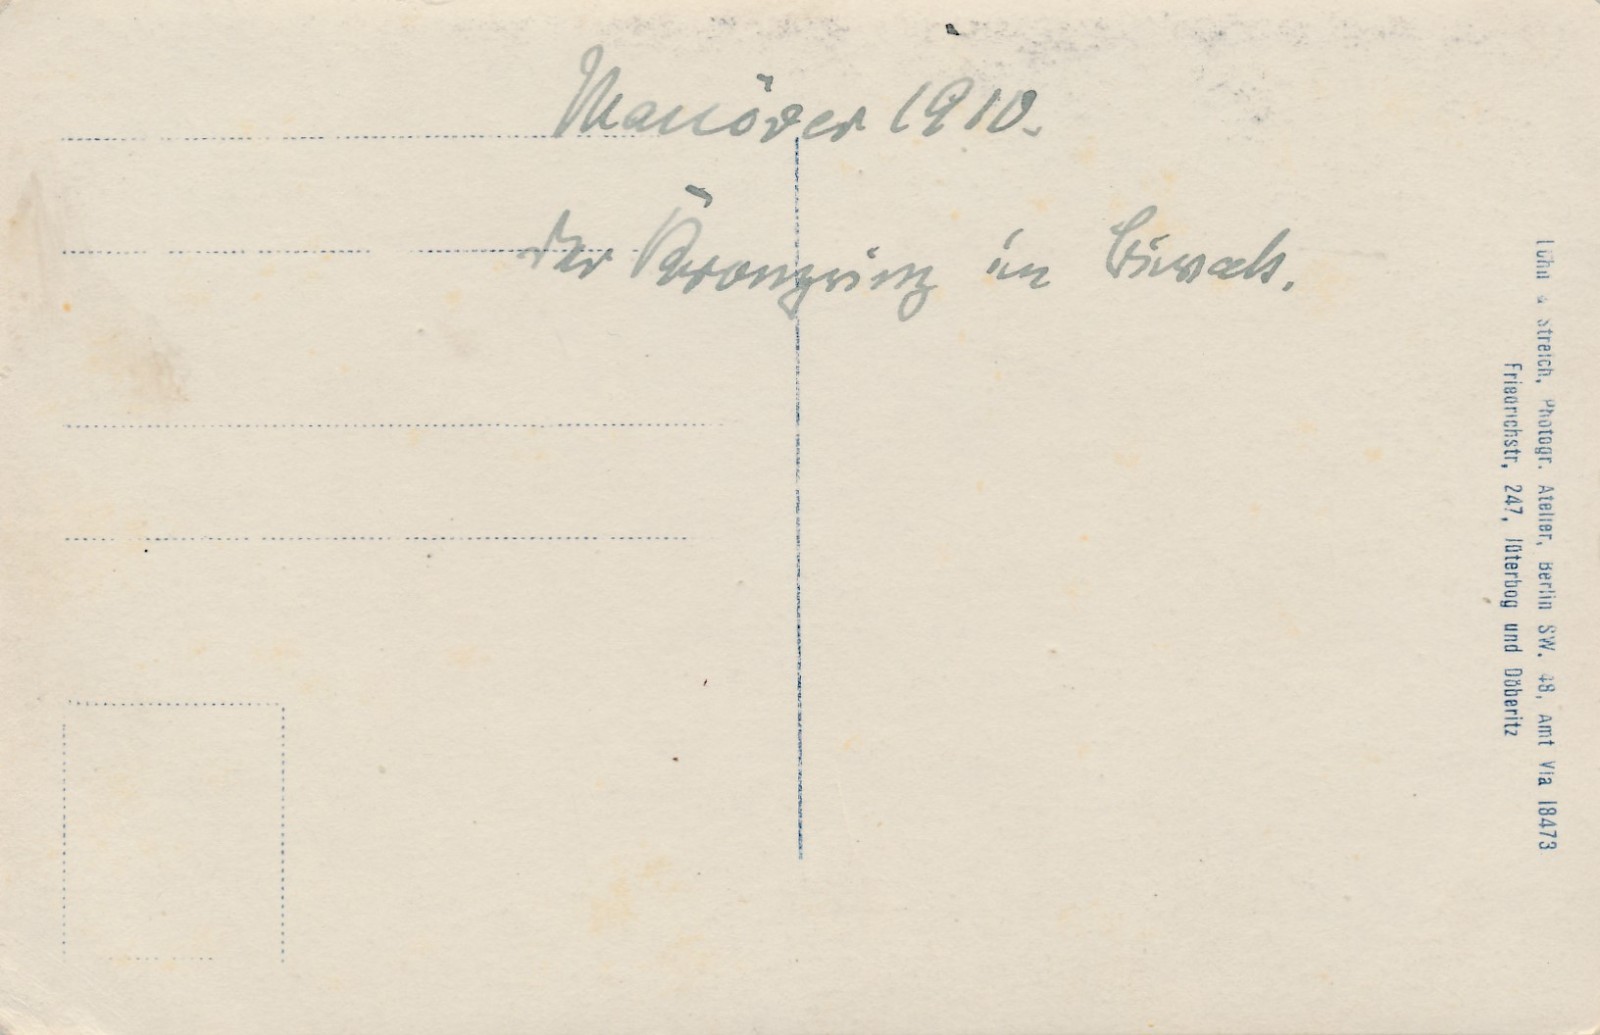 Manöver 1910.
Der Kronprinz im Biwak.
Kühn & Streich, Photogr. Atelier, Berlin SW. 48, Amt VIa 18473
Friedrichstr. 247, Jüterbog und Döberitz